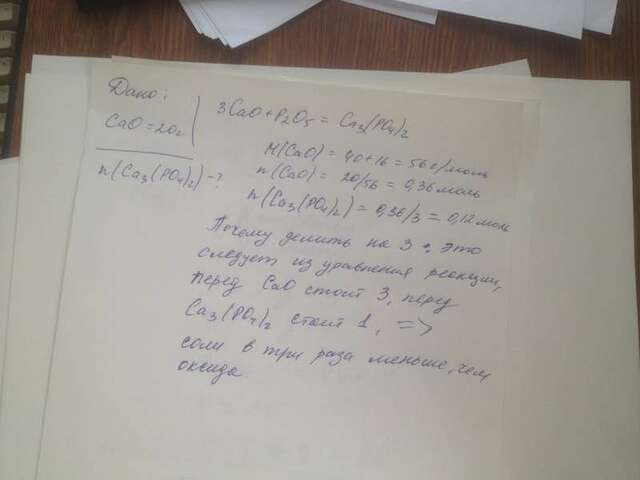 Дано:
CaO = 20г
n(Ca3(PO4)2) - ?
3CaO + P2O5 = Ca3(PO4)2
M(CaO) = 40+16 = 56 г/моль
n(CaO) = 20/56 = 0,36 моль
n(Ca3(PO4)2) = 0,36/3 = 0,12 моль
Почему делить на 3: это
следует из уравнения реакции,
перед CaO стоит 3, перед
Ca3(PO4)2 стоит 1, =>
соли в три раза меньше, чем
оксида